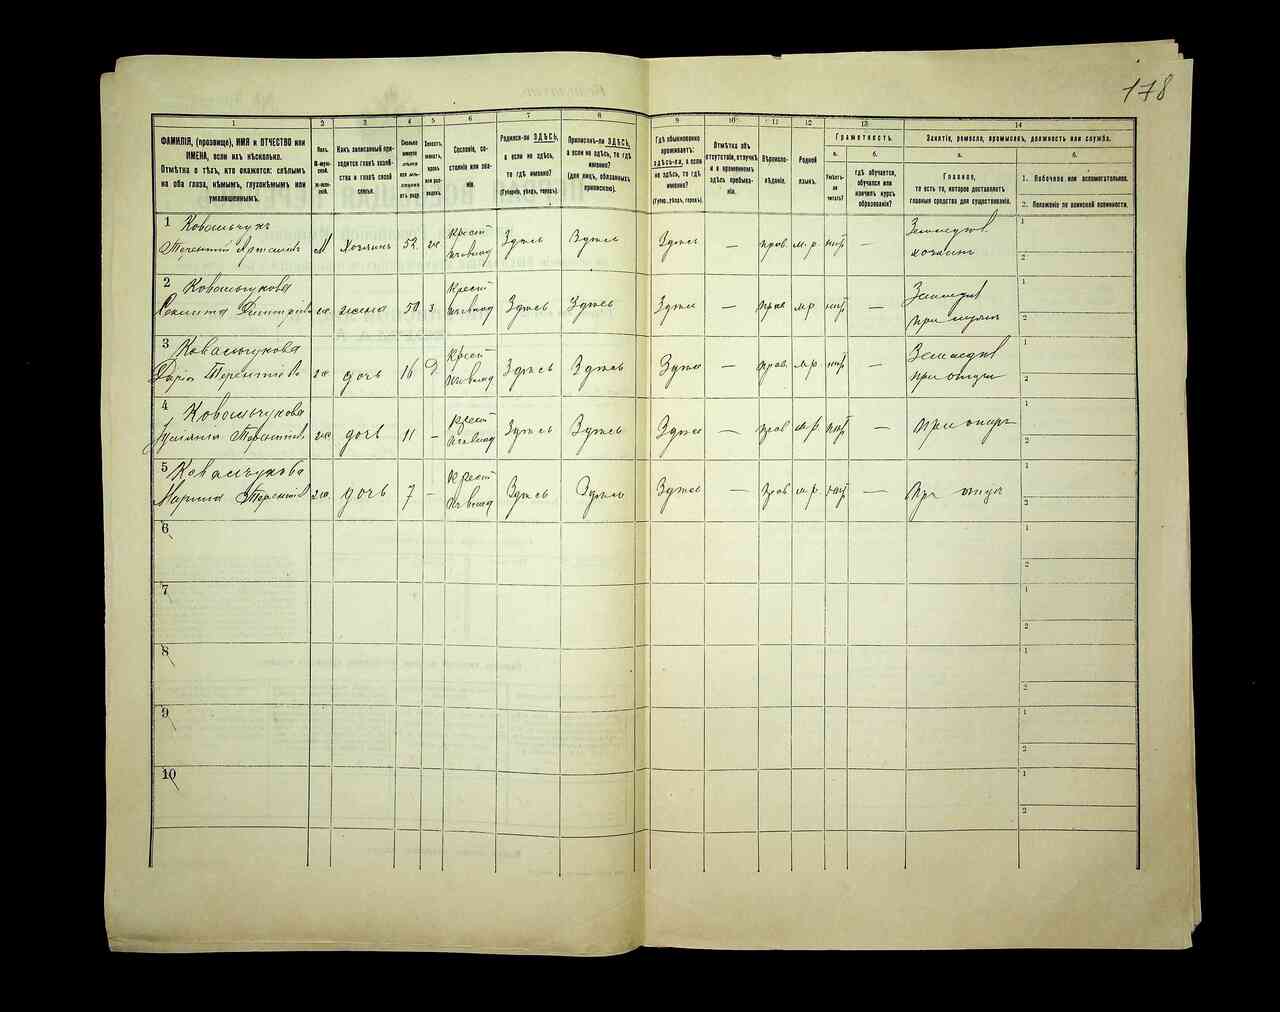 178
1 2 3 4 5 6 7 8 9 10 11 12 13 14
ФАМИЛІЯ, (прозвище), ИМЯ и ОТЧЕСТВО или
ИМЕНА, если ихъ нѣсколько.
Отмѣтка о тѣхъ, кто окажется: слѣпымъ
на оба глаза, нѣмымъ, глухонѣмымъ или
умалишеннымъ.
Полъ.
М-муж-
ской.
Ж-жен-
скій.
Какъ записанный при-
ходится главѣ хозяй-
ства и главѣ своей
семьи.
Сколько
минуло
лѣтъ
или мѣ-
сяцевъ
отъ роду.
Холостъ,
женатъ,
вдовъ
или раз-
веденъ.
Сословіе, со-
стояніе или зва-
ніе.
Родился-ли ЗДѢСЬ,
а если не здѣсь,
то гдѣ именно?
(Губернія, уѣздъ, городъ).
Приписанъ-ли ЗДѢСЬ,
а если не здѣсь, то гдѣ
именно?
(для лицъ, обязанныхъ
припискою).
Гдѣ обыкновенно
проживаетъ:
здѣсь-ли, а если
не здѣсь, то гдѣ
именно?
(Губер., уѣздъ, городъ).
Отмѣтка объ
отсутствіи, отлучкѣ
и о временномъ
здѣсь пребыва-
ніи.
Вѣроиспо-
вѣданіе.
Родной
языкъ.
Грамотность.
а.
Умѣетъ-
ли
читать?
б.
гдѣ обучается,
обучался или
кончилъ курсъ
образованія?
Занятіе, ремесло, промыселъ, должность или служба.
а.
Главное,
то есть то, которое доставляетъ
главныя средства для существованія.
б.
1. Побочное или вспомогательное.
2. Положеніе по воинской повинности.
1 Ковальчукъ
Терентій М Хозяинъ 52 ж Крест Здѣсь Здѣсь Здѣсь — прав. м.р. нѣтъ — Земледѣл
хозяинъ
1
2
2 Ковальчукова
Димитріев ж жена 50 з. Крест Здѣсь Здѣсь Здѣсь — прав м.р нѣтъ — Земледѣл
при мужѣ
1
2
3 Ковальчукова
Дарія Терентіев ж дочь 16 Д Крест Здѣсь Здѣсь Здѣсь — прав. м.р. нѣтъ — Земледѣл
при отцѣ
1
2
4 Ковальчукова
Терентіев ж дочь 11 — Крест Здѣсь Здѣсь Здѣсь — прав м.р. нѣтъ — при отцѣ
1
2
5 Ковальчукова
Марина Терентіев ж дочь 7 — Крест Здѣсь Здѣсь Здѣсь — прав м.р. нѣтъ — При отцѣ
1
2
6
1
2
7
1
2
8
1
2
9
1
2
10
1
2